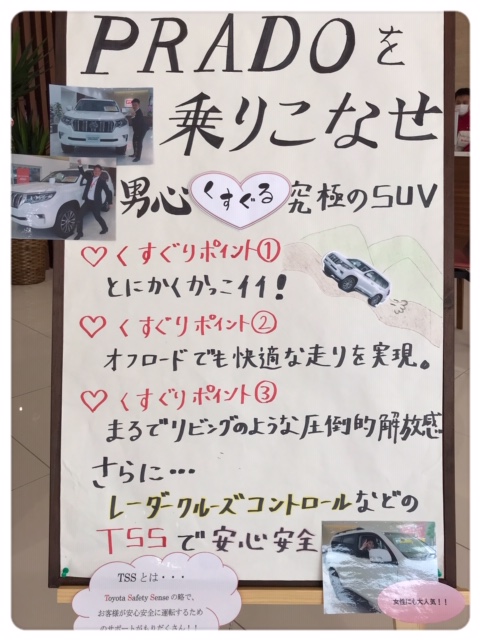 PRADOを
乗りこなせ
男心くすぐる究極のSUV
♡くすぐりポイント①
とにかくかっこイイ!
♡くすぐりポイント②
オフロードでも快適な走りを実現。
♡くすぐりポイント③
まるでリビングのような圧倒的解放感
さらに…
レーダークルーズコントロールなどの
TSSで安心安全
TSSとは・・・
Toyota Safety Senseの略で、
お客様が安心安全に運転するため
のサポートがもりだくさん!!
女性にも大人気!!